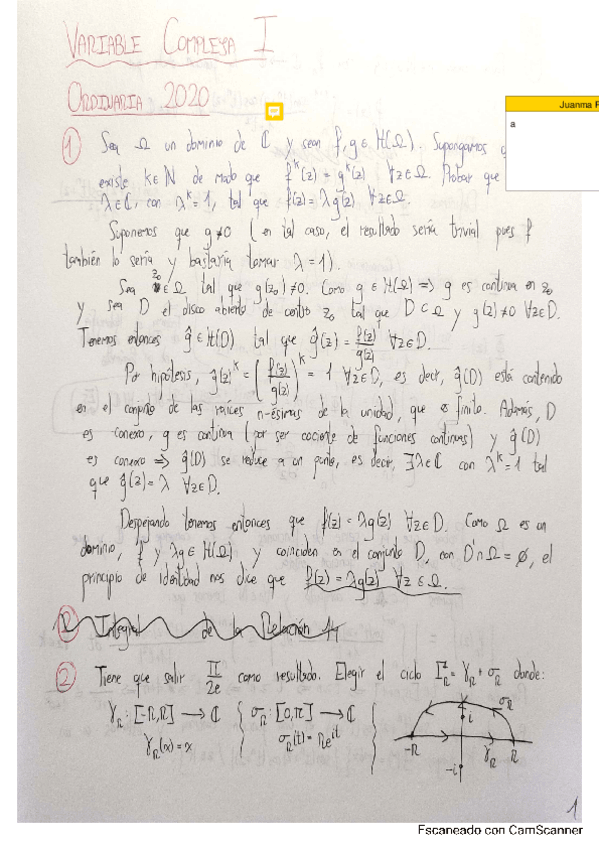 VARIABLE COMPLEJA I
ORDINARIA 2020
Juanma F
a
① Sea Ω un dominio de ℂ y sean f, g ∈ H(Ω). Supongamos
existe k∈ℕ de modo que f^k(z) = g^k(z) ∀z∈Ω. Probar que
λ∈ℂ, con λ^k = 1, tal que f(z) = λg(z) ∀z∈Ω.
Suponemos que g≠0 (en tal caso, el resultado sería trivial pues f
también lo sería y bastaría tomar λ = 1).
Sea z₀∈Ω tal que g(z₀) ≠ 0. Como g ∈ H(Ω) ⇒ g es continua en z₀
y sea D el disco abierto de centro z₀ tal que D⊂Ω y g(z) ≠ 0 ∀z∈D.
Tenemos entonces ĝ∈H(D) tal que ĝ(z) = f(z)/g(z) ∀z∈D.
Por hipótesis, ĝ(z)^k = (f(z)/g(z))^k = 1 ∀z∈D, es decir, ĝ(D) está contenido
en el conjunto de las raíces n-ésimas de la unidad, que es finito. Además, D
es conexo, g es continua (por ser cociente de funciones continuas) y ĝ(D)
es conexo ⇒ ĝ(D) se reduce a un punto, es decir, ∃λ∈ℂ con λ^k = 1 tal
que ĝ(z) = λ ∀z∈D.
Despejando tenemos entonces que f(z) = λg(z) ∀z∈D. Como Ω es un
dominio, f y λg ∈ H(Ω) y coinciden en el conjunto D, con D'∩Ω = ∅, el
principio de identidad nos dice que f(z) = λg(z) ∀z∈Ω.
② Integral de la Relación 14
② Tiene que salir π/2e como resultado. Elegir el ciclo Γ_R = γ_R + σ_R donde:
γ_R : [-R,R] → ℂ { σ_R : [0,π] → ℂ
γ_R(x) = x σ_R(t) = Re^{it}
σ_R
i
-R γ_R R
-i
1
Escaneado con CamScanner